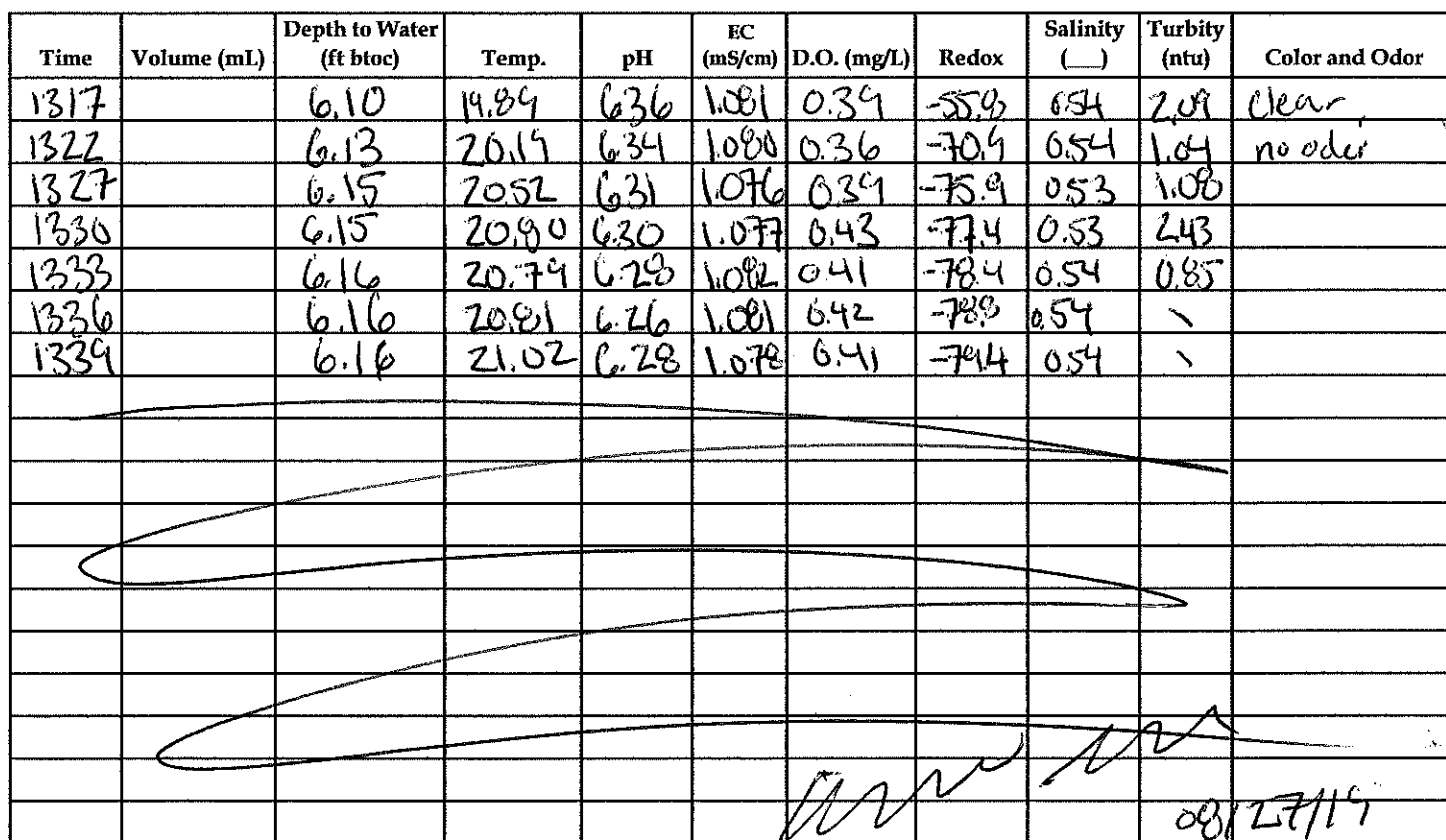 Time Volume (mL) Depth to Water (ft btoc) Temp. pH EC (mS/cm) D.O. (mg/L) Redox Salinity (__) Turbity (ntu) Color and Odor
1317 6.10 19.89 6.36 1.081 0.39 -55.8 0.54 2.09 clear,
1322 6.13 20.19 6.34 1.080 0.36 -70.9 0.54 1.04 no oder
1327 6.15 20.52 6.31 1.076 0.39 -75.9 0.53 1.08
1330 6.15 20.80 6.30 1.077 0.43 -77.4 0.53 2.43
1333 6.16 20.79 6.28 1.082 0.41 -78.4 0.54 0.85
1336 6.16 20.81 6.26 1.081 0.42 -78.8 0.54 \
1339 6.16 21.02 6.28 1.078 0.41 -79.4 0.54 \
08/27/19